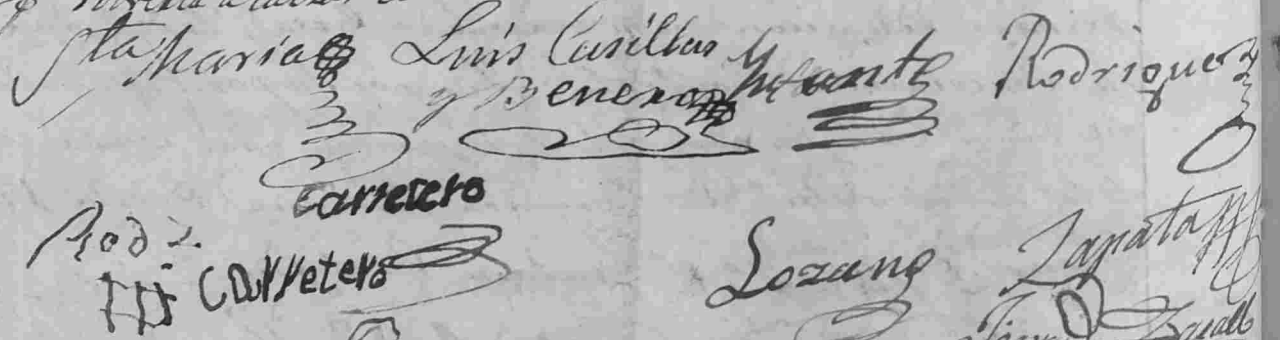 Sta Maria Luis Casillas Infante Rodriguez
y Benero
Carretero
Rodz.
Carretero Lozano Zapata